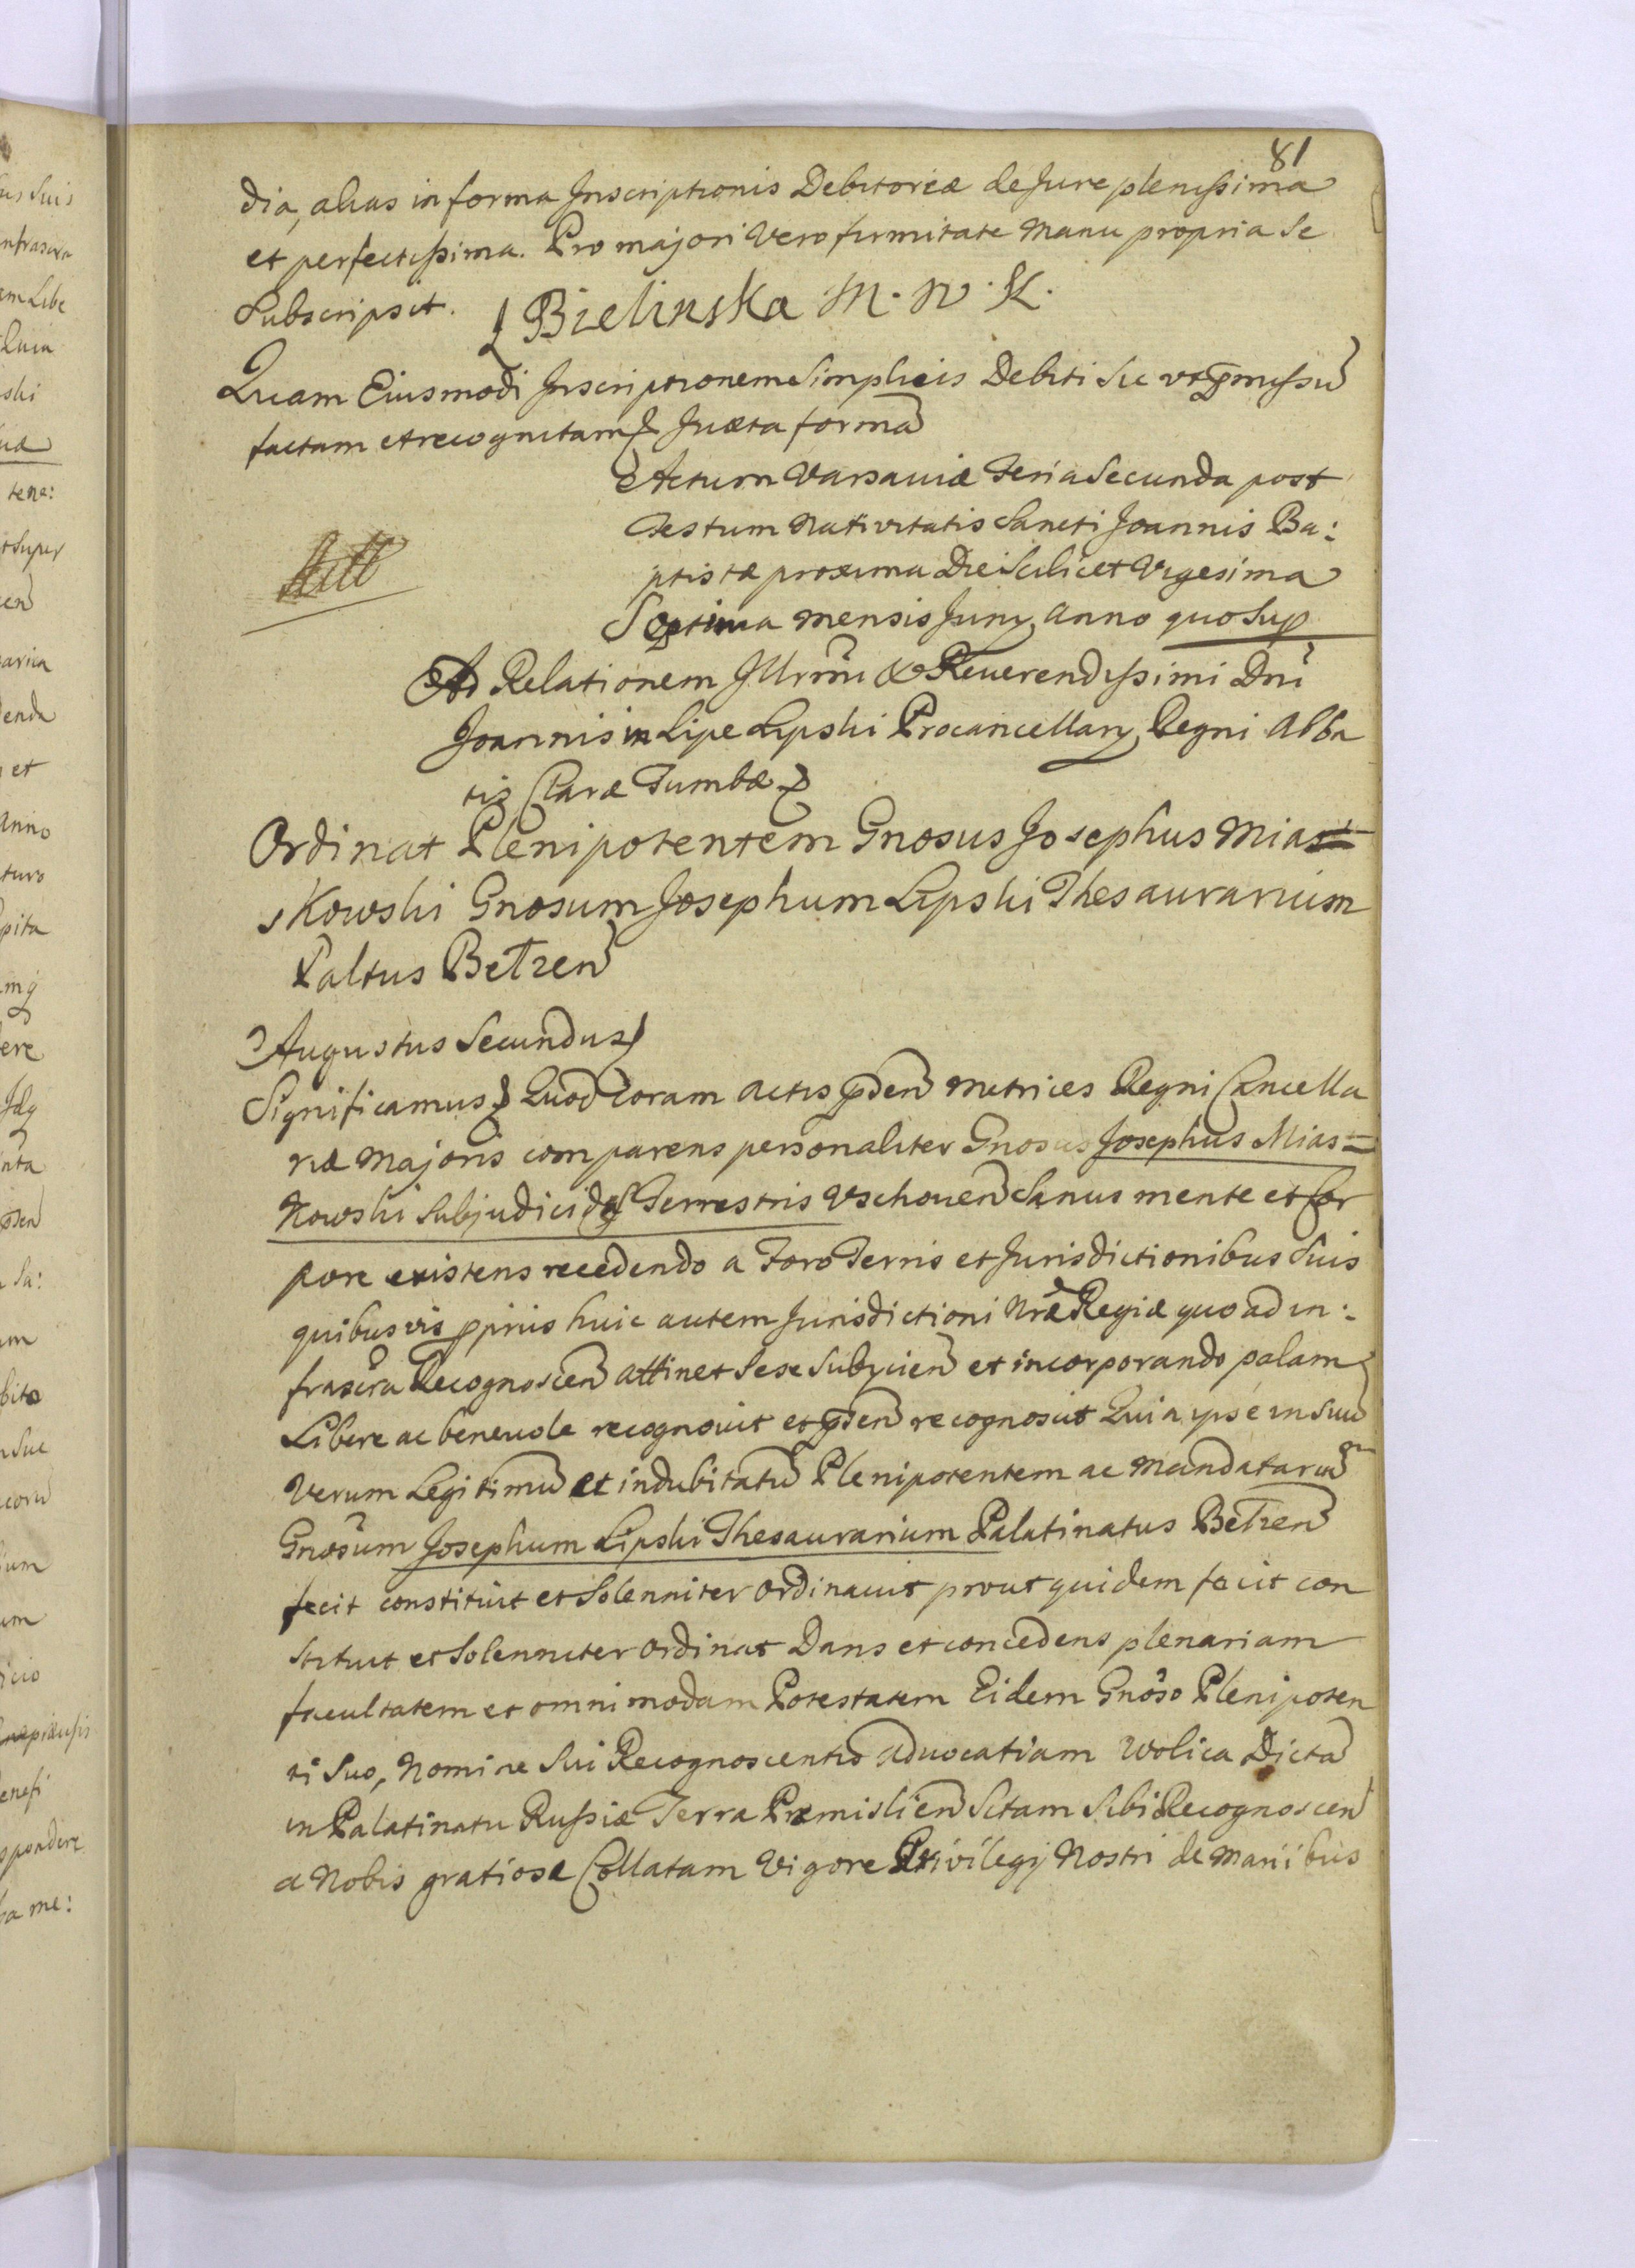 81
dia, alias in forma Inscriptionis Debitoriæ de Jure plenissima
et perfectissima. Pro majori Vero firmitate Manu propria Se
Subscripsit. Bielinska M. N. K.
Quam Eiusmodi Inscriptionem Simplicis Debiti Sic ut p̄missũ
factam et recognitam Juxta formã
Actum Varsaviæ Feria Secunda post
Festum Nativitatis Sancti Joannis Ba:
ptistæ proxima Die Scilicet Vigesima
Septima mensis Juny Anno quo Sup
Ad Relationem Illrmi & Reverendissimi Dni
Joannis in Lipe Lipski Procancellary Regni Abba
tis Claræ Tumbæ
Ordinat Plenipotentem Gnosus Josephus Mias=
skowski Gnosum Josephum Lipski Thesaurarium
Paltus Betzen
Augustus Secundus
Significamus Quod Coram actis p̄sen Metrices Regni Cancella
riæ Majoris comparens personaliter Gnosus Josephus Mias=
kowski Subjudicides Terrestris Vschouen Sanus mente et Cor
pore existens recedendo a Foro Terris et Jurisdictionibus Suis
quibusvis pprius huic autem Jurisdictioni Nræ Regiæ quo ad in:
frascra Recognoscen attinet Sese Subycien et incorporando palam
Libere ac benevole recognovit et p̄sen recognoscit Quia ipse in Suũ
Verum Legitimũ et indubitatũ Plenipotentem ac Mandatariũ
Gnosum Josephum Lipski Thesaurarium Palatinatus Betzen
fecit constituit et Solenniter Ordinavit prout quidem facit con
stituit et Solenniter Ordinat Dans et concedens plenariam
facultatem et omnimodam Potestatem Eidem Gnoso Plenipoten
ti Suo, Nomine Sui Recognoscentis advocatiam Wolica Dictã
in Palatinatu Russiæ Terra Præmislien Sitam Sibi Recognoscen
a Nobis gratiose Collatam Vigore Privilegij Nostri de Manibus